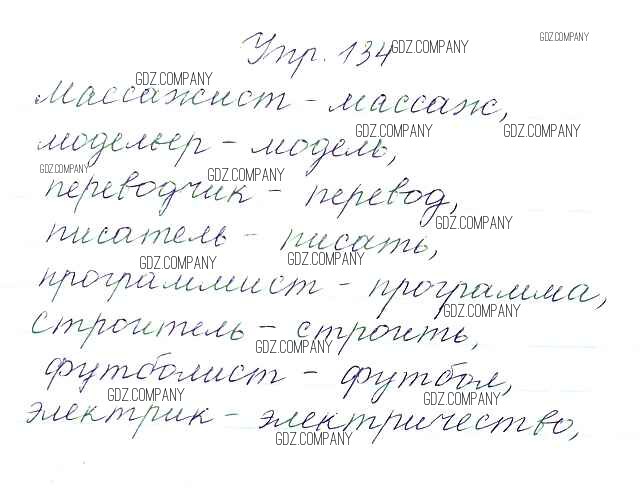 Упр. 134
GDZ.COMPANY
GDZ.COMPANY
GDZ.COMPANY
массажист - массаж,
GDZ.COMPANY
GDZ.COMPANY
модельер - модель,
GDZ.COMPANY
GDZ.COMPANY
переводчик - перевод,
GDZ.COMPANY
писатель - писать,
GDZ.COMPANY
GDZ.COMPANY
программист - программа,
GDZ.COMPANY
строитель - строить,
GDZ.COMPANY
футболист - футбол,
GDZ.COMPANY
GDZ.COMPANY
электрик - электричество,
GDZ.COMPANY